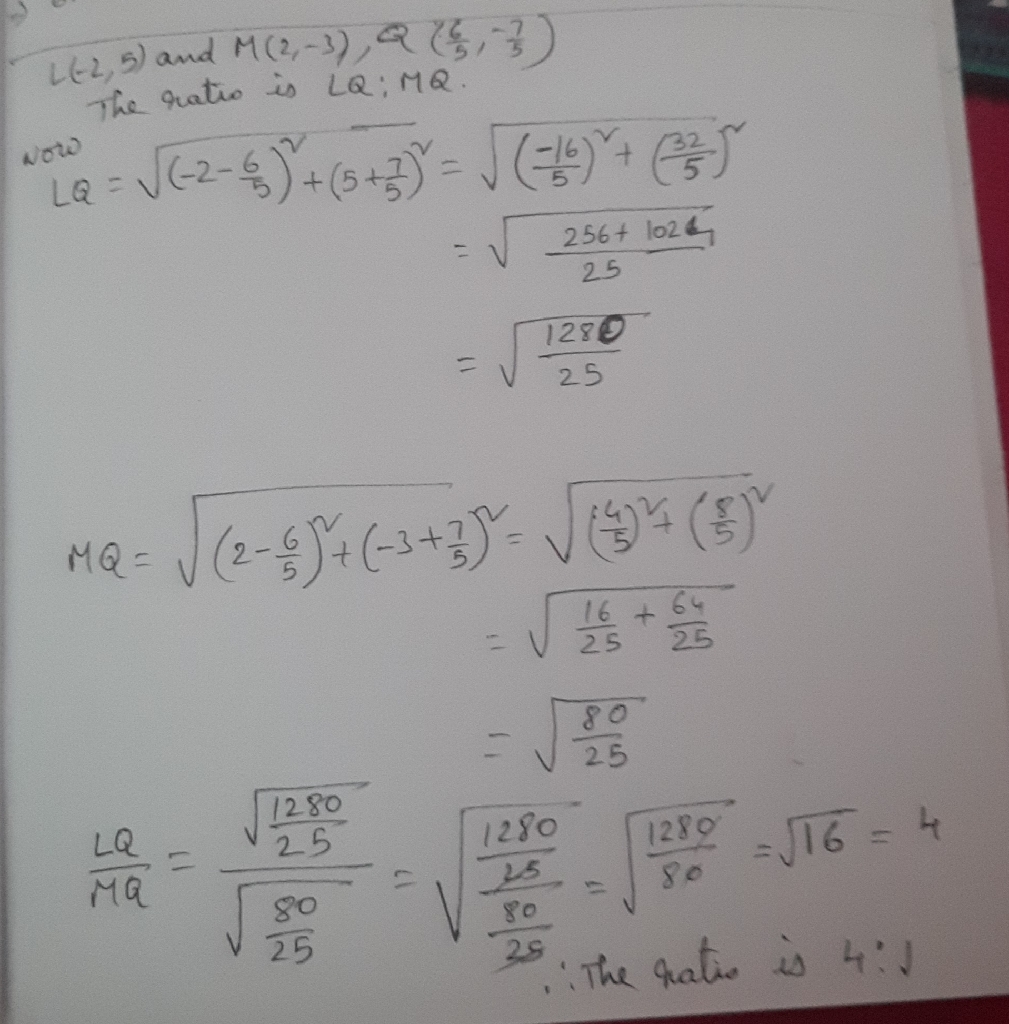 L(-2, 5) and M(2, -3), Q (6/5, -7/5)
The ratio is LQ : MQ.
Now
LQ = √((-2 - 6/5)² + (5 + 7/5)²) = √((-16/5)² + (32/5)²)
= √((256 + 1024)/25)
= √(1280/25)
MQ = √((2 - 6/5)² + (-3 + 7/5)²) = √((4/5)² + (8/5)²)
= √(16/25 + 64/25)
= √(80/25)
LQ/MQ = √(1280/25) / √(80/25) = √((1280/25)/(80/25)) = √(1280/80) = √16 = 4
∴ The ratio is 4 : 1